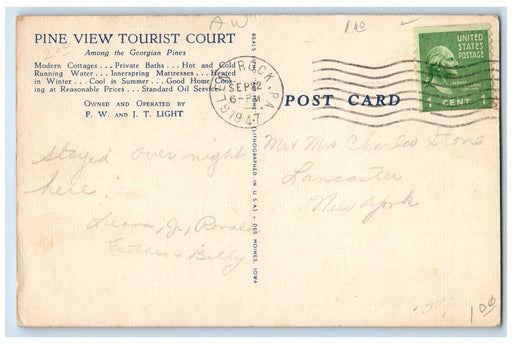 AW
1.00
PINE VIEW TOURIST COURT
Among the Georgian Pines
Modern Cottages . . . Private Baths . . . Hot and Cold
Running Water . . . Innerspring Mattresses . . . Heated
in Winter . . . Cool in Summer . . . Good Home Cook-
ing at Reasonable Prices . . . Standard Oil Service.
OWNED AND OPERATED BY
F. W. AND J. T. LIGHT
ROCK, PA.
SEP 22
6-PM
1947
UNITED
STATES
POSTAGE
1 CENT 1
POST CARD
LITHOGRAPHED IN U.S.A. • DES MOINES, IOWA
Stayed over night
here.
Jr, Ronald
Esther & Billy
Mr & Mrs Charles Stone
Lancaster
New York
1 00